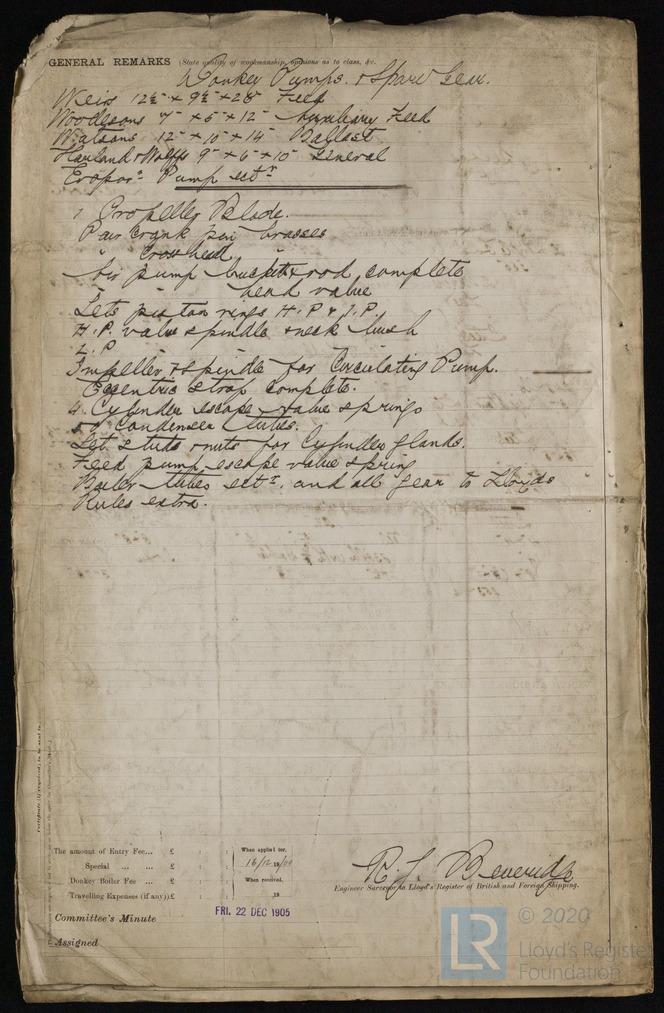 GENERAL REMARKS (State quality of workmanship, opinions as to class, &c.
Donkey Pumps. & Spare Gear.
Weirs 12½" × 9½" × 28" Feed
Woodesons 7" × 5" × 12" Auxiliary Feed
Watsons 12" × 10" × 14" Ballast
Harland & Wolffs 9" × 6" × 10" General
Evapor. Pump ext.
1 Propeller Blade.
Pair Crank pin brasses
" Crosshead "
Air pump bucket & rod complete
head valve
Sets piston rings H.P & I.P.
H.P. valve spindle & neck bush
L.P
Impeller & spindle for Circulating Pump.
Eccentric strap complete.
4 Cylinder escape valve springs
Condenser tubes.
Set studs & nuts for Cylinder glands.
Feed pump escape valve spring
Boiler tubes ext. and all gear to Lloyds
Rules extra.
The amount of Entry Fee... £ : :
Special ... ... £ : :
Donkey Boiler Fee ... £ : :
Travelling Expenses (if any) £ : :
When applied for,
16/12/19
When received,
19
R J. Beveridge
Engineer Surveyor to Lloyd's Register of British and Foreign Shipping.
Committee's Minute
FRI. 22 DEC 1905
Assigned
LR
© 2020
Lloyd's Register
Foundation